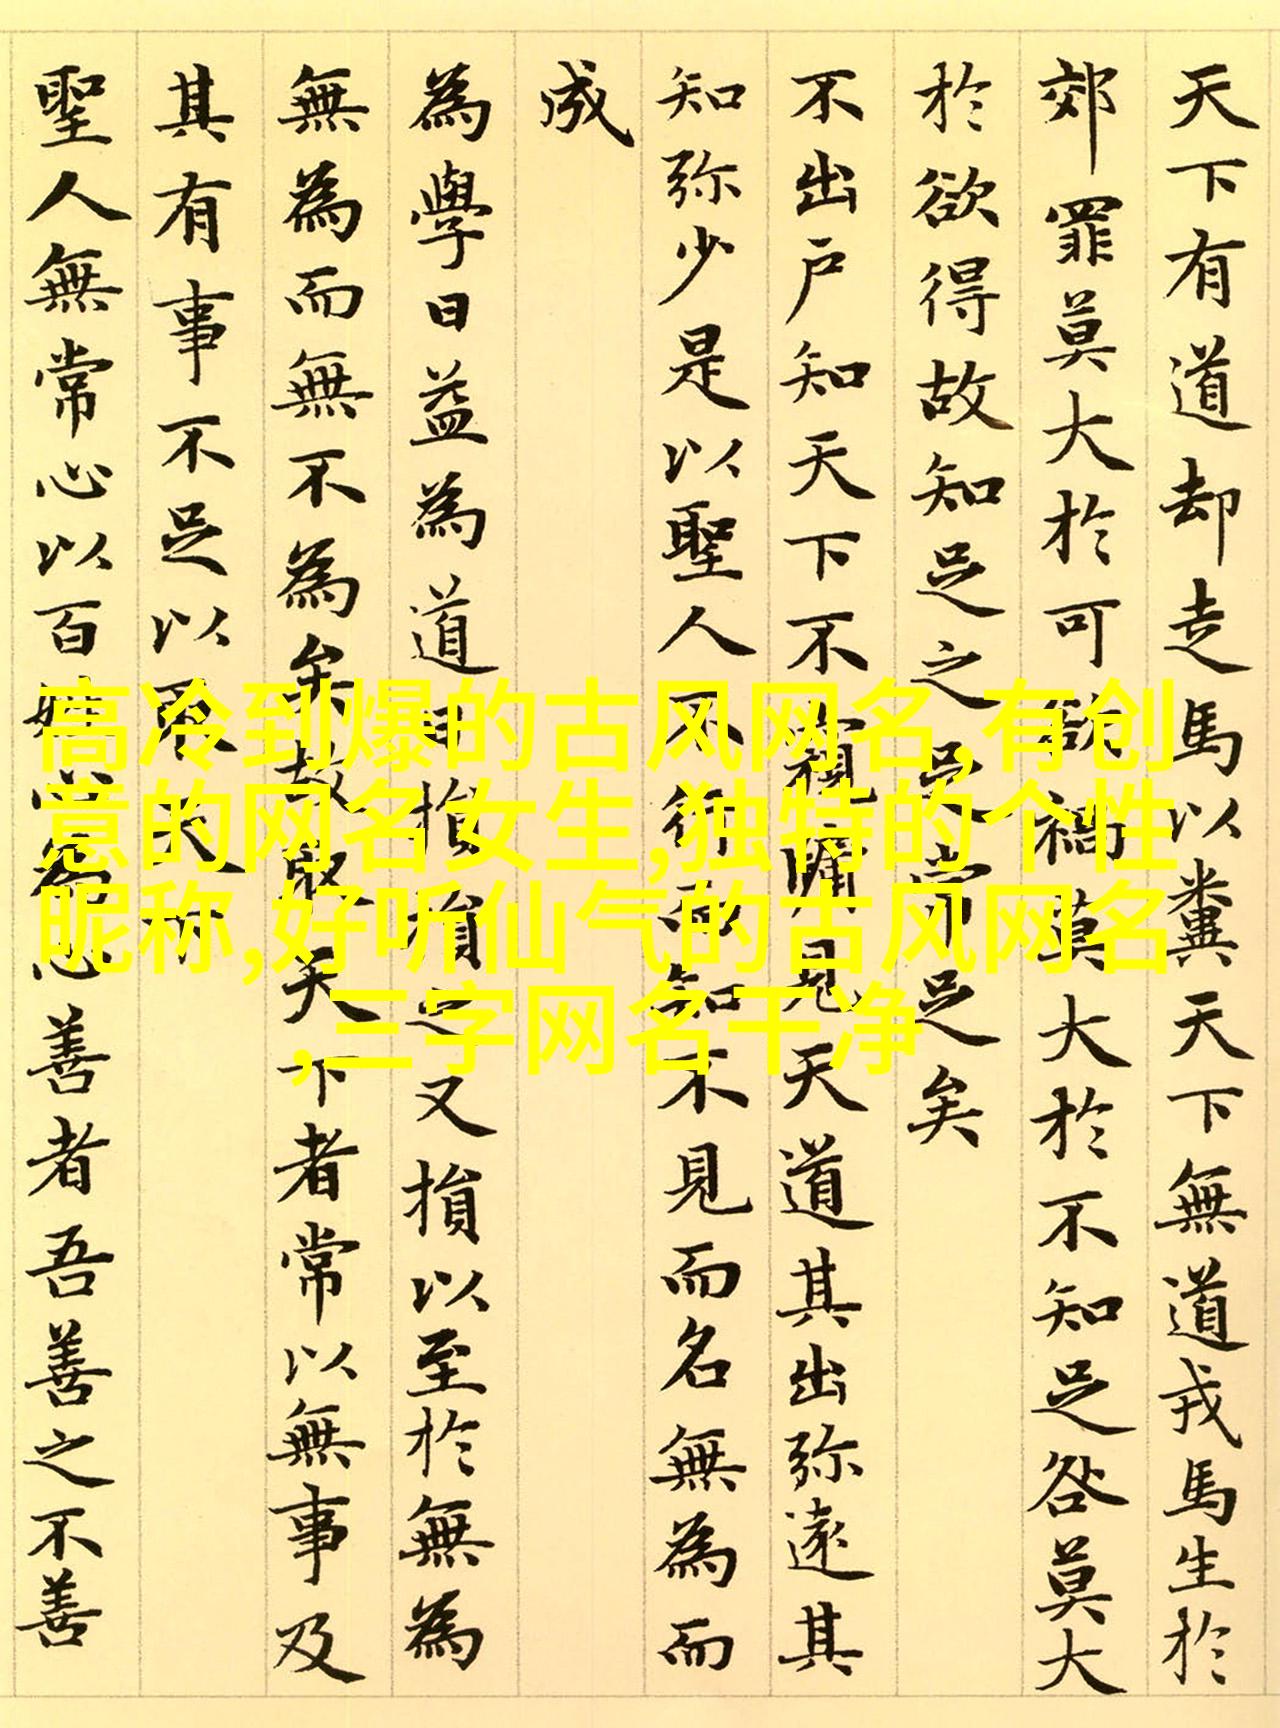 天下有道却走馬以糞天下無道戎馬生於
郊罪莫大於可欲禍莫大於不知足咎莫大
於欲得故知足之足常足矣
不出户知天下不窺牖見天道其出弥遠其
知弥少是以聖人不行而知不見而名無為而
成
為學日益為道日損損之又損以至於無為
無為而無不為矣故取天下者常以無事及
其有事不足以取天下
聖人無常心以百姓心為心善者吾善之不善
高冷到爆的古风网名,有创
意的网名女生,独特的个性
昵称,好听仙气的古风网名
,三字网名干净